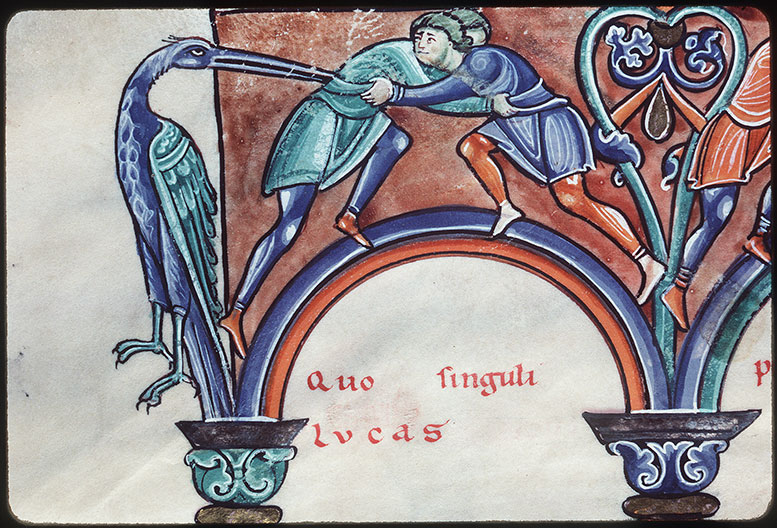 Quo singuli
Lucas
p